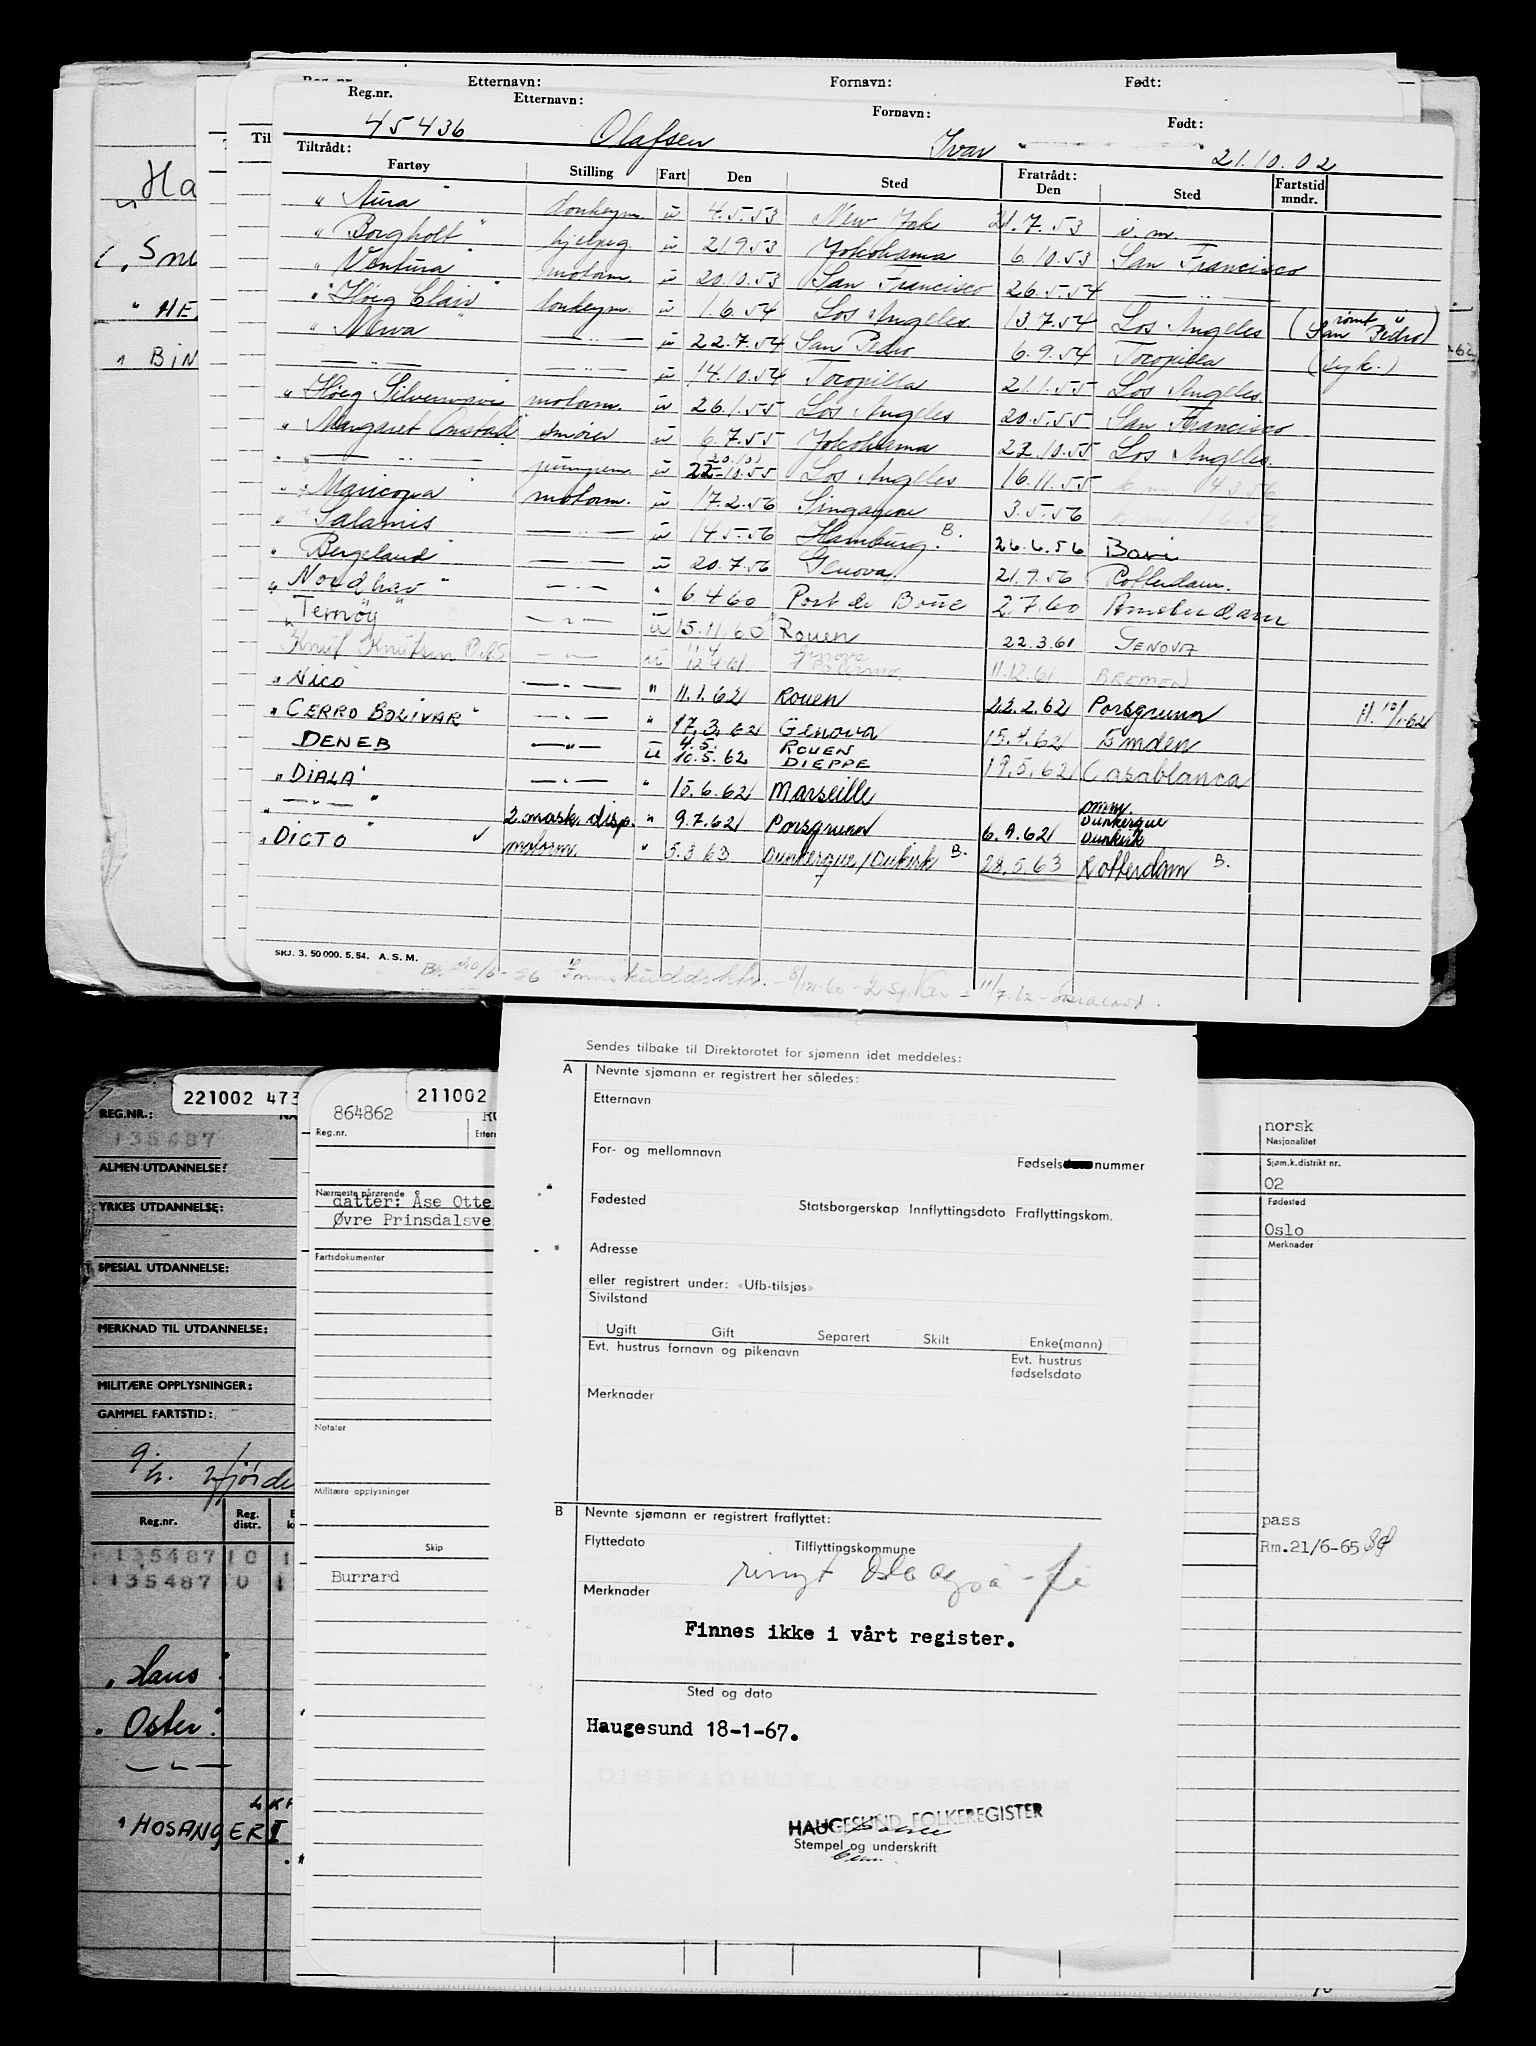 Reg.nr. Etternavn: Fornavn: Født:
Reg.nr. Etternavn: Fornavn: Født:
45436 Olafsen Ivar 21.10.02
Tiltrådt: Fratrådt:
Fartøy Stilling Fart Den Sted Den Sted Fartstid mndr.
" Aura " donkeym. u 4.5.53 New York 21.7.53 s.m.
" Borgholt " hjelpeg. u 21.9.53 Yokohama 6.10.53 San Francisco
" Ventura " motorm. u 20.10.53 San Francisco 26.5.54 — " —
" Höeg Clair " donkeym. u 1.6.54 Los Angeles 13.7.54 Los Angeles (rømt San Pedro)
" Newa " — " — u 22.7.54 San Pedro 6.9.54 Tocopilla (syk.)
— " — — " — u 14.10.54 Tocopilla 21.1.55 Los Angeles
" Höeg Silverwave motorm. u 26.1.55 Los Angeles 20.5.55 San Francisco
" Margaret Onstad " smører u 6.7.55 Yokohama 22.10.55 Los Angeles.
" — " — pumpem. u 22.10.55 Los Angeles 16.11.55
" Maricopa " motorm. u 17.2.56 Singapore 3.5.56
" Salamis — " — u 14.5.56 Hamburg. B. 26.6.56 Bari
" Bergeland " — " — u 20.7.56 Genova. 21.9.56 Rotterdam.
" Nordhav " — " — " 6.4.60 Port de Bouc 2.7.60 Amsterdam
" Ternöy " — " — u 15.11.60 Rouen 22.3.61 GENOVA
Knut Knutsen O.A.S. — " — u 11.4 12.4.61 Genova Palermo 11.12.61 BREMEN
" Nico — " — " 11.1.62 Rouen 22.2.62 Porsgrunn
" CERRO BOLIVAR " — " — " 17.3.62 Genova 15.4.62 Emden
DENEB — " — u 4.5. 10.5.62 ROUEN DIEPPE 19.5.62 Casablanca
" DIALA " — " — " 15.6.62 Marseille
" — " — " 2. mask. disp. " 9.7.62 Porsgrunn 6.9.62 mm. Dunkerque Dunkirk
" DICTO " motorm. " 5.3.63 Dunkerque / Dukirk B. 28.5.63 Rotterdam B.
SKJ. 3. 50 000. 5. 54. A. S. M.
Ha
" HE
" BIN
Sendes tilbake til Direktoratet for sjømenn idet meddeles:
A Nevnte sjømann er registrert her således:
Etternavn
For- og mellomnavn Fødselsnummer
Fødested Statsborgerskap Innflyttingsdato Fraflyttingskom.
Adresse
eller registrert under: «Ufb-tilsjøs»
Sivilstand
Ugift Gift Separert Skilt Enke(mann)
Evt. hustrus fornavn og pikenavn Evt. hustrus fødselsdato
Merknader
B Nevnte sjømann er registrert fraflyttet:
Flyttedato Tilflyttingskommune
ringt Oslo også
Merknader
Finnes ikke i vårt register.
Sted og dato
Haugesund 18-1-67.
HAUGESUND FOLKEREGISTER
Stempel og underskrift
221002 473
REG.NR.: NA
135487
ALMEN UTDANNELSE:
YRKES UTDANNELSE:
SPESIAL UTDANNELSE:
MERKNAD TIL UTDANNELSE:
MILITÆRE OPPLYSNINGER:
GAMMEL FARTSTID:
Reg.nr. Reg. distr.
135487 10 1
135487 10 1
" Haus "
" Oster "
" HOSANGER I
211002
864862
Reg.nr. Ettern
Nærmeste pårørende
datter: Åse Otte
Øvre Prinsdalsve
Fartsdokumenter
Notater
Militære opplysninger
Skip
Burrard
norsk
Nasjonalitet
Sjøm.k.distrikt nr.
02
Fødested
Oslo
Merknader
pass
Rm.21/6-65